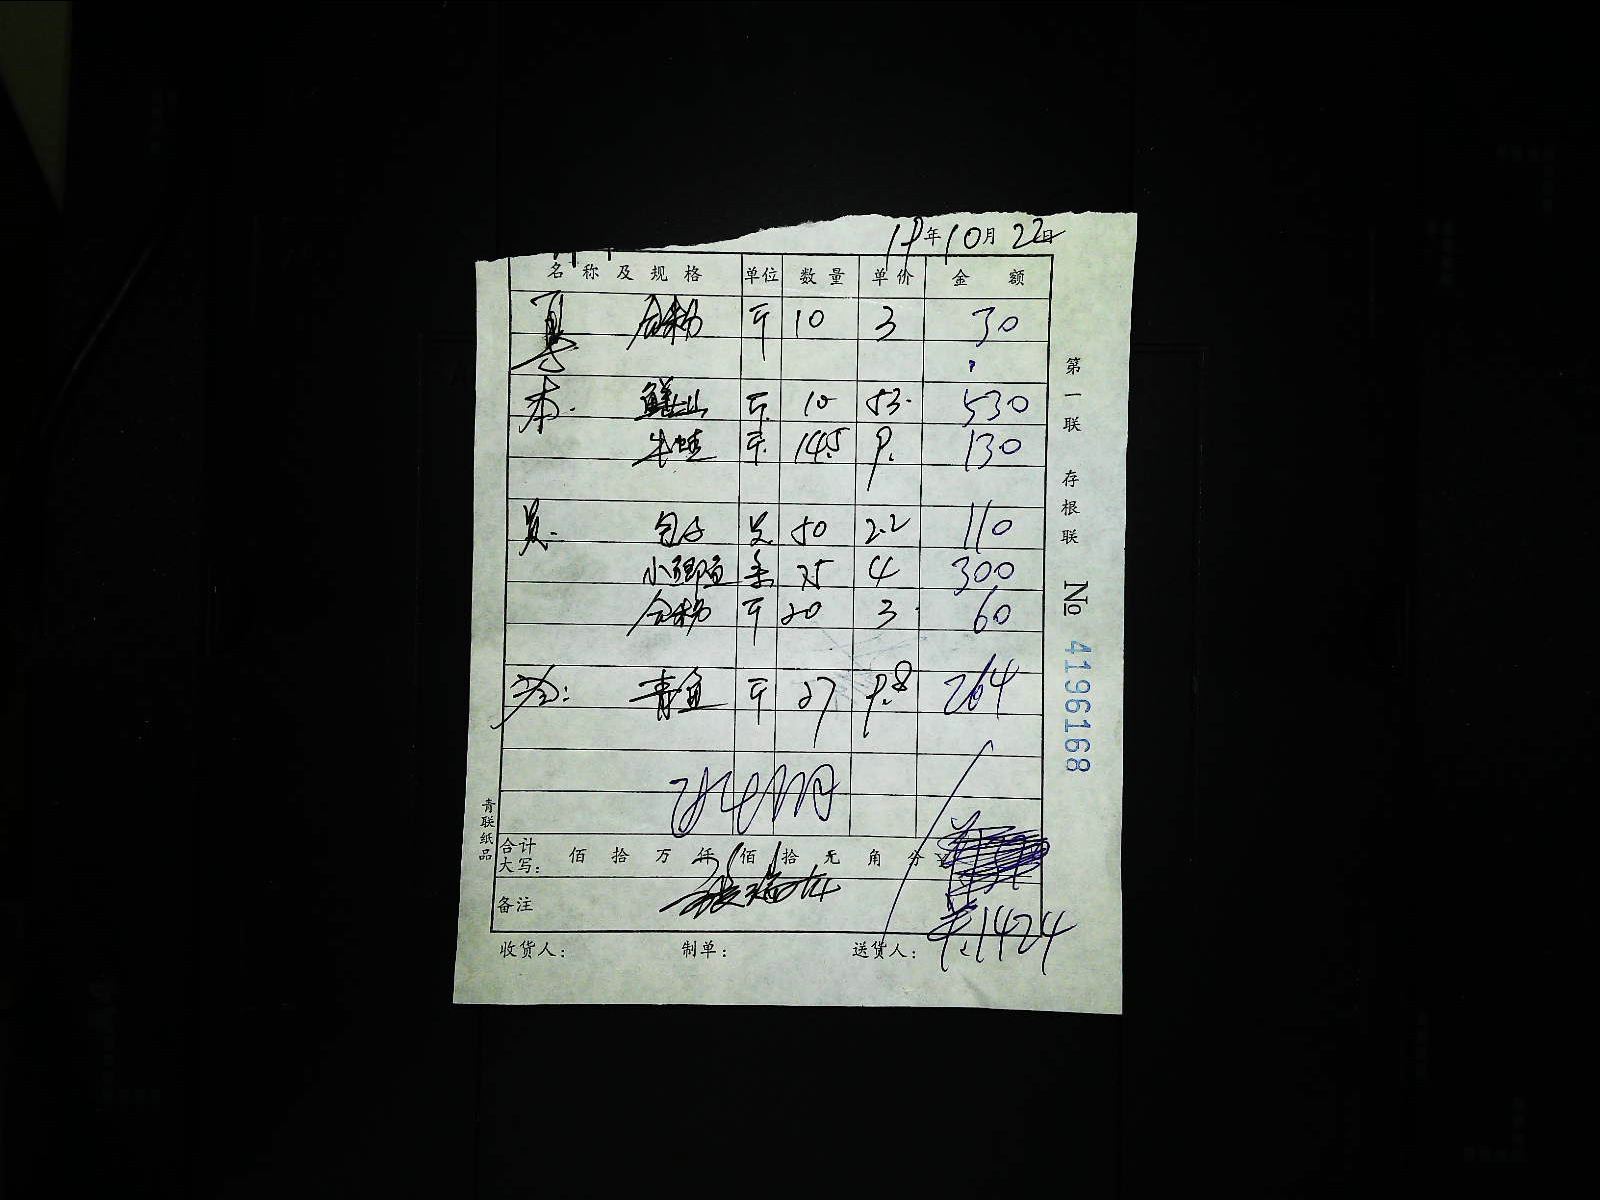 19年10月22日
名称及规格 单位 数量 单价 金额
合粉 斤 10 3 30
本. 斤 10 53. 530
牛蛙 斤 14.5 9. 130
包子 50 2.2 110
小 条 75 4 300
合粉 斤 20 3 60
青鱼 斤 27 9.8 264
合计
大写: 佰 拾 万 仟 佰 拾 元 角 分
备注
¥.1424
收货人: 制单: 送货人:
第一联 存根联 № 4196168
青联纸品